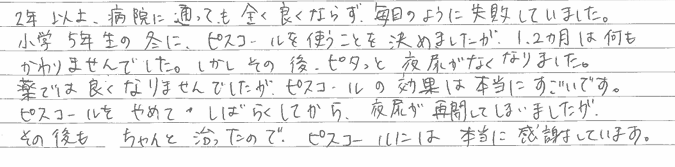 2年以上、病院に通っても全く良くならず、毎日のように失敗していました。
小学5年生の冬に、ピスコールを使うことを決めましたが、1.2カ月は何も
かわりませんでした。しかしその後、ピタッと夜尿がなくなりました。
薬では良くなりませんでしたが、ピスコールの効果は本当にすごいです。
ピスコールをやめて、しばらくしてから、夜尿が再開してしまいましたが、
その後も ちゃんと治ったので、ピスコールには本当に感謝しています。